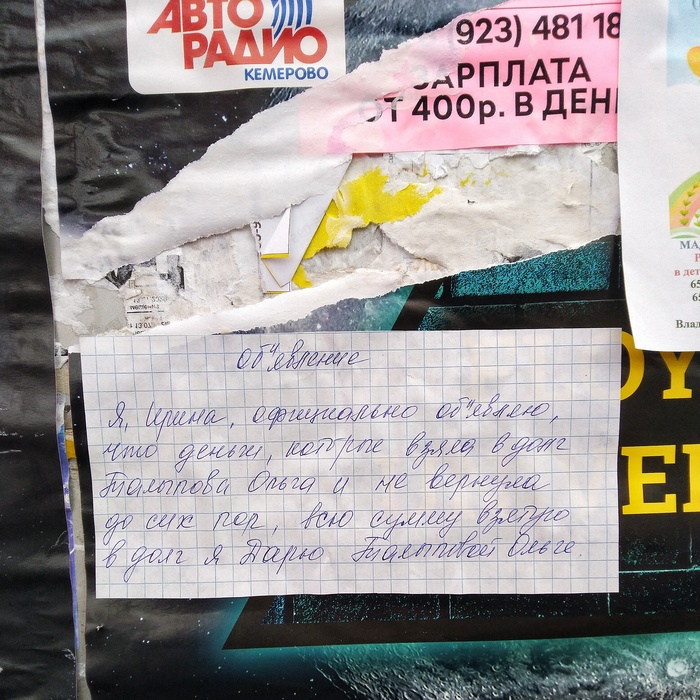 АВТО
РАДИО
КЕМЕРОВО
923) 481 18
ЗАРПЛАТА
ОТ 400р. В ДЕН
МА
в дет
65
Влад
Об"явление
Я, Ирина, официально об"являю,
что деньги, которые взяла в долг
Талыпова Ольга и не вернула
до сих пор, всю сумму взятую
в долг я дарю Талыповой Ольге.